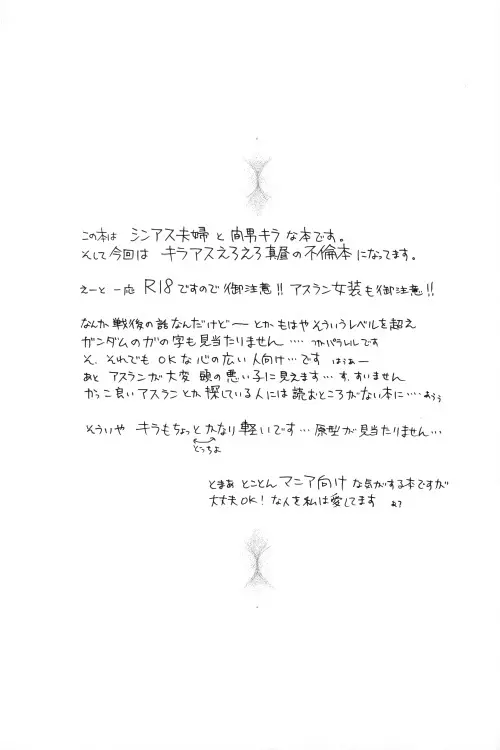 この本は シンアス夫婦 と 間男キラ な本です。
そして今回は キラアスえろえろ真昼の不倫本 になってます。
えーと 一応 R18 ですので 御注意!! アスラン女装も御注意!!
なんか 戦後の話なんだけどー とかもはやそういうレベルを超え
ガンダムのガの字も見当たりません…. つかパラレルです
そ、それでも OKな心の広い人向け…です はうぁー
あと アスランが大変 頭の悪い子に見えます… す、すいません
かっこ良いアスランとか探している人には読むところがない本に…. あぅぅ
そういや キラもちょっとかなり軽いです… 原型が見当たりません…
どっちよ
とまぁ とことん マニア向け な気がする本ですが
大丈夫OK! な人を私は愛してます